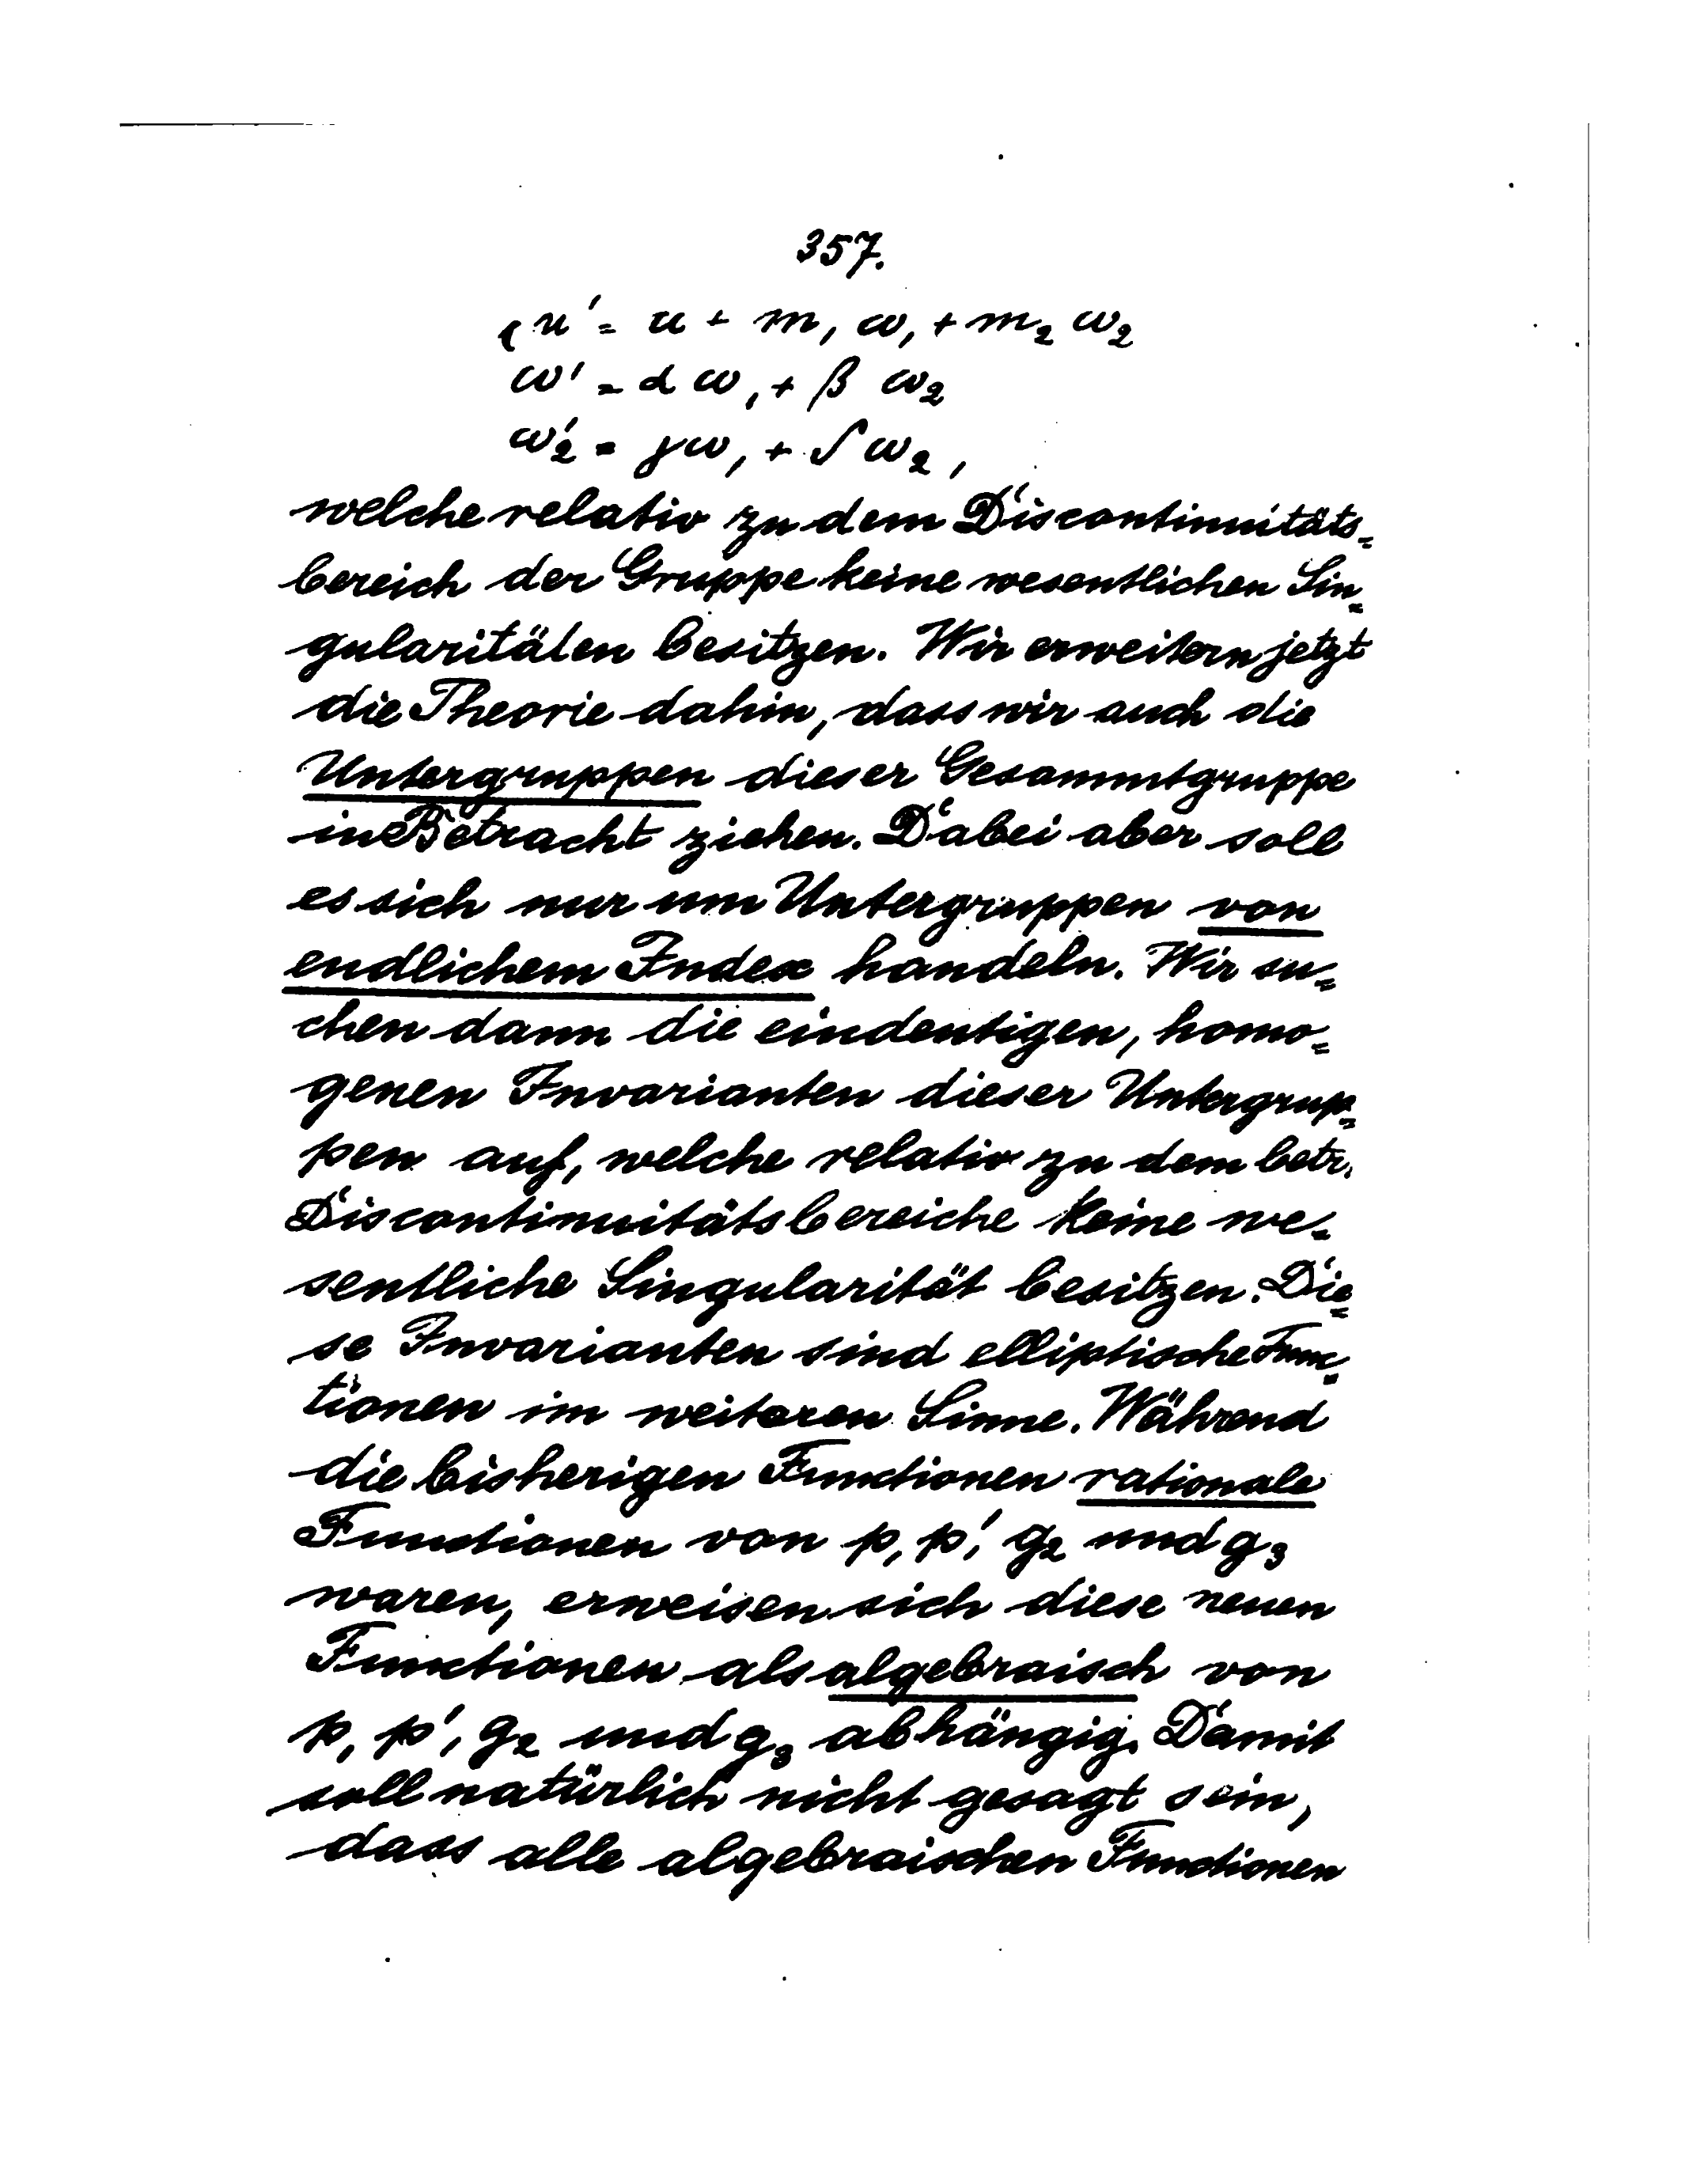 357.
u' = u + m₁ ω₁ + m₂ ω₂
ω' = α ω₁ + β ω₂
ω₂' = γω₁ + δ ω₂,
welche relativ zu dem Discontinuitäts=
bereich der Gruppe keine wesentlichen Sin=
gularitäten besitzen. Wir erweitern jetzt
die Theorie dahin, dass wir auch die
Untergruppen dieser Gesammtgruppe
in Betracht ziehen. Dabei aber soll
es sich nur um Untergruppen von
endlichem Index handeln. Wir su=
chen dann die eindeutigen, homo=
genen Invarianten dieser Untergrup=
pen auf, welche relativ zu dem betr.
Discontinuitätsbereiche keine we=
sentliche Singularität besitzen. Die=
se Invarianten sind elliptische Func=
tionen im weiteren Sinne. Während
die bisherigen Functionen rationale
Functionen von p, p', g₂ und g₃
waren, erweisen sich diese neuen
Functionen als algebraisch von
p, p', g₂ und g₃ abhängig. Damit
soll natürlich nicht gesagt sein,
dass alle algebraischen Functionen